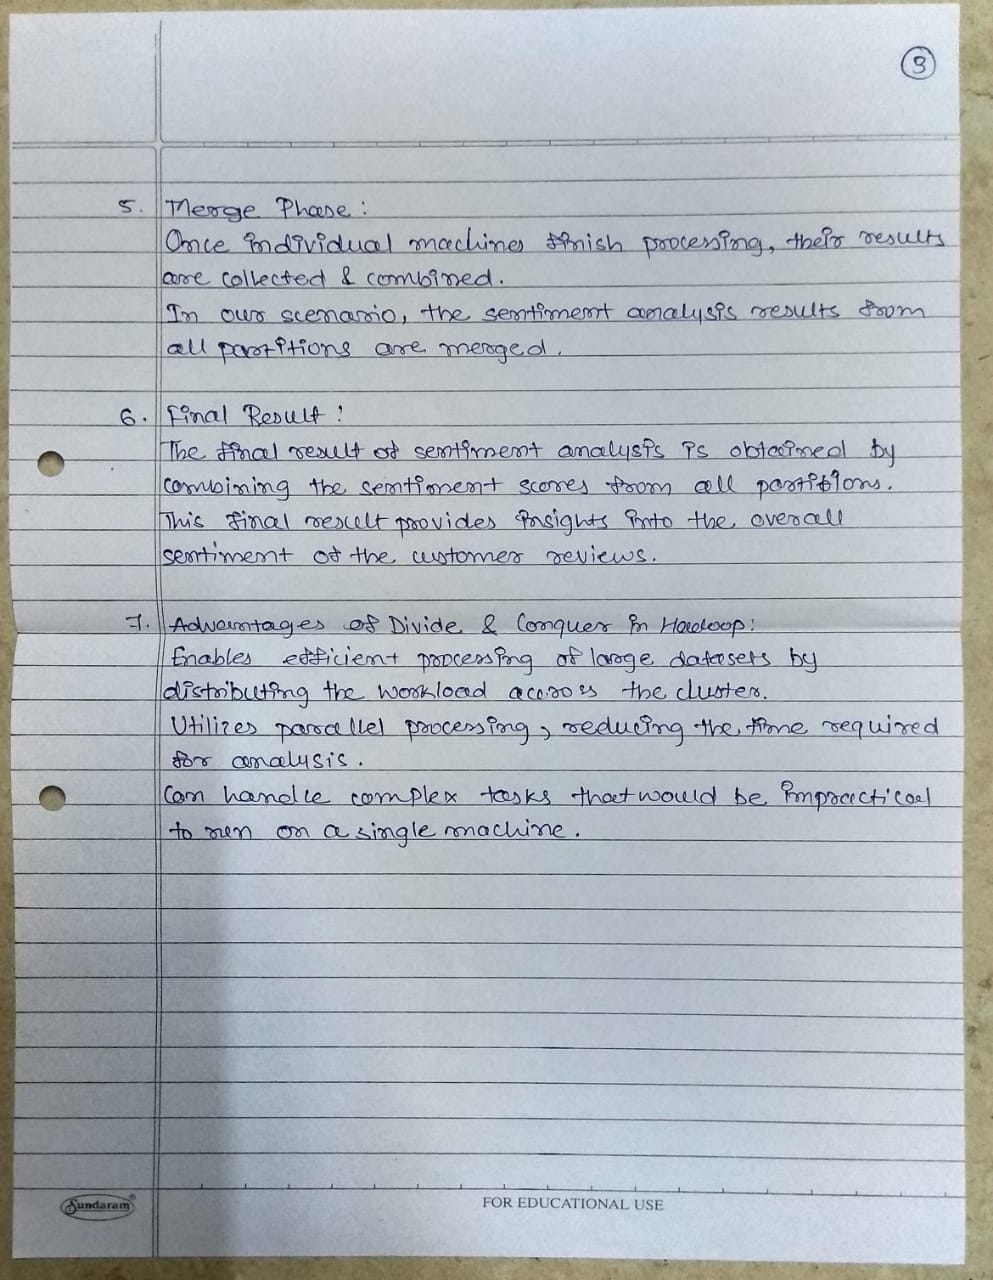 3
5. Merge Phase :
Once individual machines finish processing, their results
are collected & combined.
In our scenario, the sentiment analysis results from
all partitions are merged.
6. Final Result :
The final result of sentiment analysis is obtained by
combining the sentiment scores from all partitions.
This final result provides insights into the overall
sentiment of the customer reviews.
7. Advantages of Divide & Conquer in Hadoop:
Enables efficient processing of large datasets by
distributing the workload accross the cluster.
Utilizes parallel processing, reducing the time required
for analysis.
Can handle complex tasks that would be impractical
to run on a single machine.
Sundaram®
FOR EDUCATIONAL USE